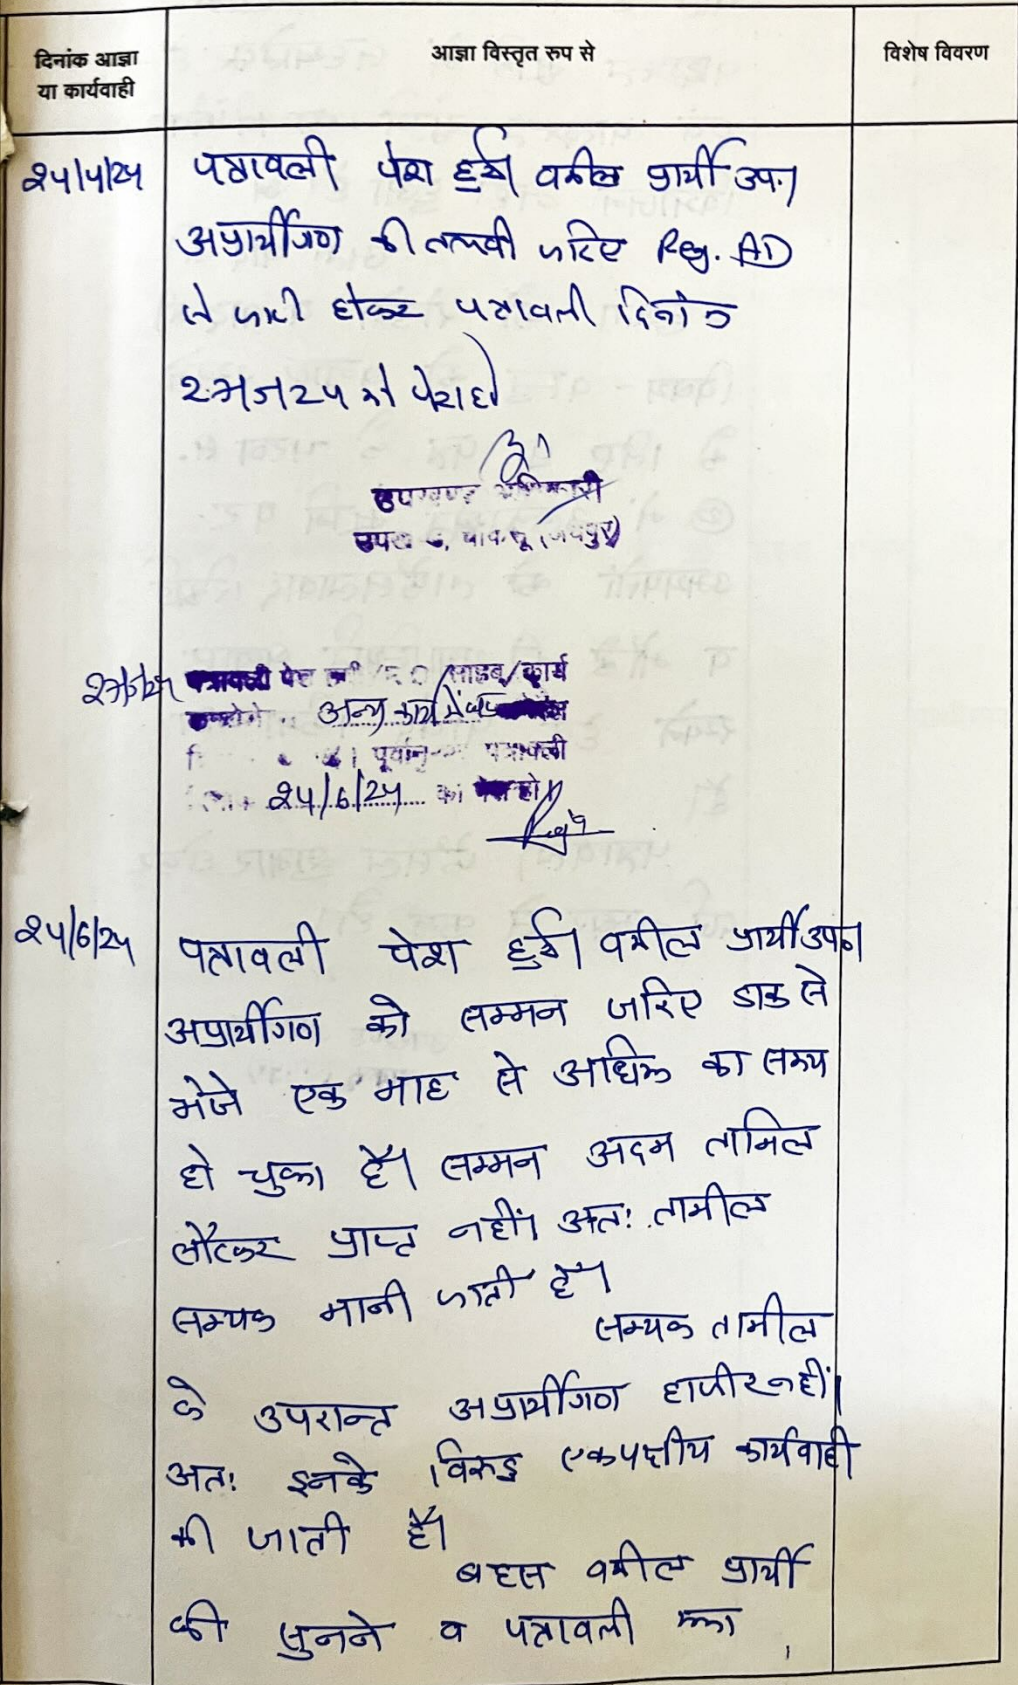 दिनांक आज्ञा
या कार्यवाही
आज्ञा विस्तृत रुप से
विशेष विवरण
24/4/24 पत्रावली पेश हुई। वकील प्रार्थी उप.।
अप्रार्थीगण की तलबी जरिए Reg. AD
से जारी होकर पत्रावली दिनांक
को पेश हो
उपखण्ड अधिकारी
चाकसू (जयपुर)
पत्रावली पेश साहब/कार्य
अन्य कार्य में
पूर्वानु पत्रावली
24/6/24 को पेश हो।
24/6/24 पत्रावली पेश हुई। वकील प्रार्थी उप.।
अप्रार्थीगण को सम्मन जरिए डाक से
भेजे एक माह से अधिक का समय
हो चुका है। सम्मन अदम तामिल
लौटकर प्राप्त नहीं। अतः तामील
सम्यक मानी जाती है।
सम्यक तामील
के उपरान्त अप्रार्थीगण हाजीर नहीं।
अतः इनके विरुद्ध एकपक्षीय कार्यवाही
की जाती है।
बहस वकील प्रार्थी
की सुनने व पत्रावली का